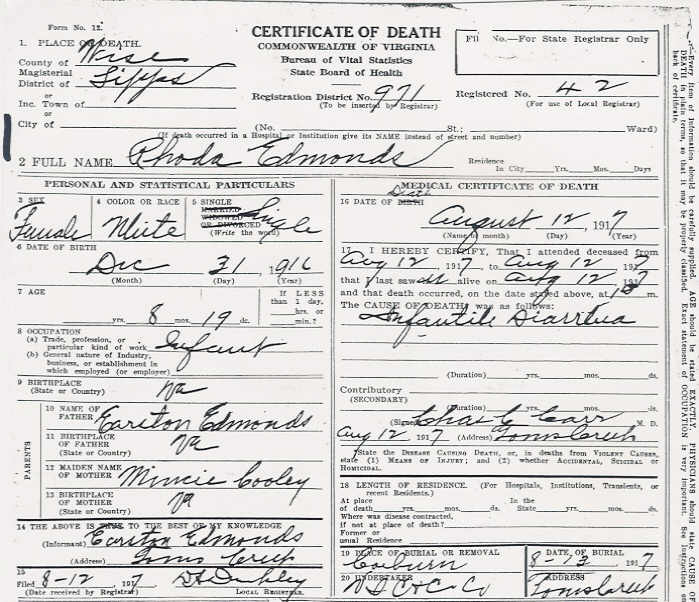 Form No. 12.
CERTIFICATE OF DEATH
COMMONWEALTH OF VIRGINIA
Bureau of Vital Statistics
State Board of Health
Fil No.—For State Registrar Only
1. PLACE OF DEATH.
County of Wise
Magisterial
District of Lipps
or
Inc. Town of
or
City of
Registration District No. 971
(To be inserted by Registrar)
Registered No. 42
(For use of Local Registrar)
(No. St.; Ward)
(If death occurred in a Hospital or Institution give its NAME instead of street and number)
2 FULL NAME Rhoda Edmonds
Residence
In City Yrs. Mos. Days
PERSONAL AND STATISTICAL PARTICULARS
3 SEX
Female
4 COLOR OR RACE
White
5 SINGLE
MARRIED
WIDOWED
OR DIVORCED
(Write the word)
Single
6 DATE OF BIRTH
Dec 31, 1916
(Month) (Day) (Year)
7 AGE
yrs. 8 mos. 19 ds.
If LESS
than 1 day,
hrs. or
min.?
8 OCCUPATION
(a) Trade, profession, or
particular kind of work Infant
(b) General nature of Industry,
business, or establishment in
which employed (or employer)
9 BIRTHPLACE
(State or Country) Va
PARENTS
10 NAME OF
FATHER Earston Edmonds
11 BIRTHPLACE
OF FATHER
(State or Country) Va
12 MAIDEN NAME
OF MOTHER Mincie Cooley
13 BIRTHPLACE
OF MOTHER
(State or Country) Va
14 THE ABOVE IS TRUE TO THE BEST OF MY KNOWLEDGE
(Informant) Earston Edmonds
(Address) Toms Creek
15
Filed 8-12, 1917
(Date received by Registrar) LOCAL REGISTRAR.
MEDICAL CERTIFICATE OF DEATH
16 DATE OF BIRTH Death
August 12, 1917
(Name of month) (Day) (Year)
17 I HEREBY CERTIFY, That I attended deceased from
Aug 12 1917, to Aug 12 1917
that I last saw alive on Aug 12 1917
and that death occurred, on the date stated above, at m.
The CAUSE OF DEATH was as follows:
Infantile Diarrhea
(Duration) yrs. mos. ds.
Contributory
(SECONDARY)
(Duration) yrs. mos. ds.
(Signed) Chas C Carr M. D.
Aug 12 1917 (Address) Toms Creek
State the DISEASE CAUSING DEATH, or, in deaths from VIOLENT CAUSES,
state (1) MEANS OF INJURY; and (2) whether ACCIDENTAL, SUICIDAL or
HOMICIDAL.
18 LENGTH OF RESIDENCE. (For Hospitals, Institutions, Transients, or
recent Residents.)
At place
of death yrs. mos. ds.
In the
State yrs. mos. ds.
Where was disease contracted,
if not at place of death?
Former or
usual Residence
19 PLACE OF BURIAL OR REMOVAL
Coeburn
DATE OF BURIAL
8-13, 1917
20 UNDERTAKER
ADDRESS
Toms Creek
—Every item of information should be carefully supplied. AGE should be stated EXACTLY. PHYSICIANS should state CAUSE OF
DEATH in plain terms, so that it may be properly classified. Exact statement of OCCUPATION is very important. See instructions on
back of certificate.